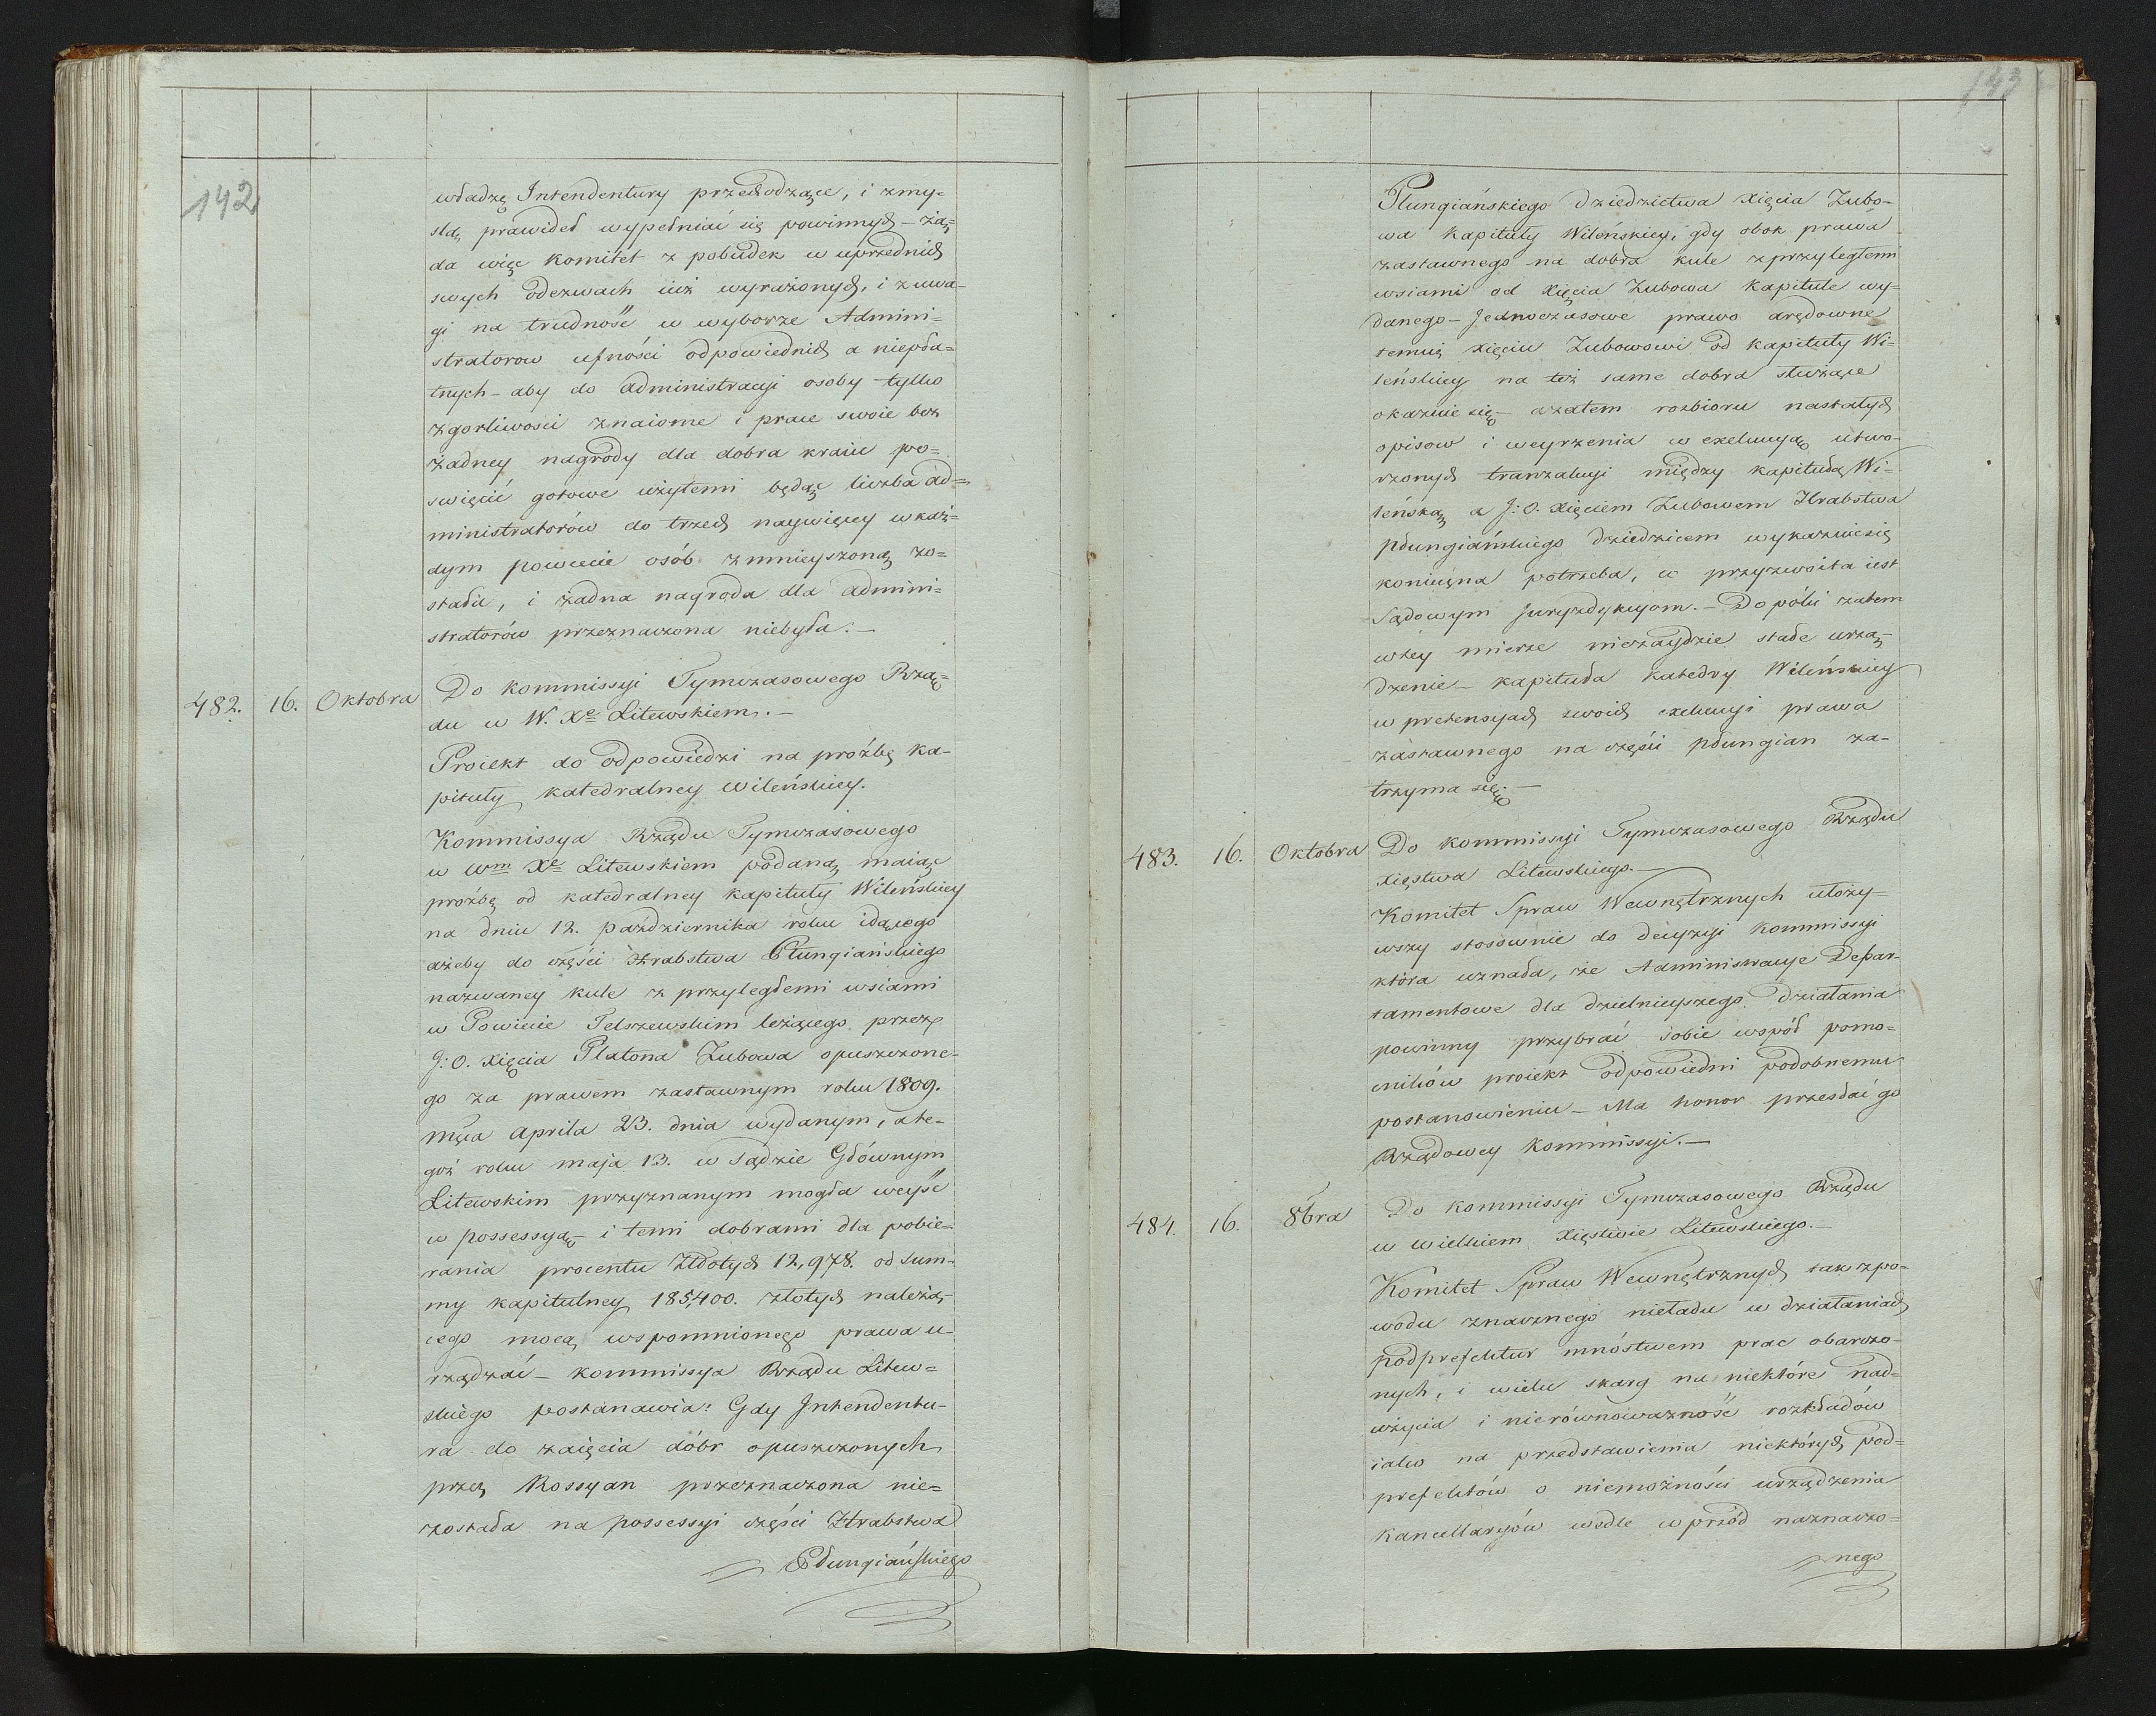 142
władzę Intendentury przechodzące, i zmy-
słą prawideł wypełniać się powinnych – żą-
da więc Komitet z pobudek w uprzednich
swych odezwach iuż wyrażonych, i z uwa-
gi na trudność w wyborze Admini-
stratorow ufności odpowiednich a niepła-
tnych – aby do administracyi osoby tylko
z gorliwosci znaiome i prace swoie bez
żadney nagrody dla dobra kraiu po-
swięcić gotowe użytemi będąc liczba ad-
ministratorów do trzech naywięcey w każ-
dym powiecie osób zmnieyszoną zo-
stała, i żadna nagroda dla admini-
stratorów przeznaczona niebyła. –
482. 16. Oktobra Do kommissyi Tymczasowego Rzą-
du w W. Xe Litewskiem. –
Proiekt do odpowiedzi na prożbę Ka-
pituły katedralney wileńskiey.
Kommissya Rządu Tymczasowego
w Wm Xe Litewskiem podaną maiąc
prożbę od katedralney kapituły Wileńskiey
na dniu 12. pażdziernika roku idącego
ażeby do części Hrabstwa Płungiańskiego
nazwaney kule z przyległemi wsiami
w Powiecie Telszewskim leżącego przez
J: O. Xięcia Platona Zubowa opuszczone-
go za prawem zastawnym roku 1809.
Mca Aprila 23. dnia wydanym, a te-
goż roku maja 13. w Sądzie Głównym
Litewskim przyznanym mogła weyść
w possessyą – i temi dobrami dla pobie-
rania procentu Złotych 12,978. od Sum-
my kapitulney 185,400. złotych należą-
cego mocą wspomnionego prawa u-
rządzać – kommissya Rządu Litew-
skiego postanawia: Gdy Intendentu-
ra do zaięcia dóbr opuszczonych
przez Rossyan przeznaczona nie-
została na possessyi części Hrabstwa
Płungiańskiego
143
Płungiańskiego dziedzictwa Xięcia Zubo-
wa Kapituły Wileńskiey, gdy obok prawa
zastawnego na dobra kule z przyległemi
wsiami od Xięcia Zubowa Kapitule wy-
danego – Jednoczasowe prawo arędowne
temuż Xięciu Zubowowi od kapituły Wi-
leńskiey na też same dobra służące
okazuie się – azatem rozbioru nastałych
opisow i weyrzenia w exekucyą utwo-
rzonych tranzakcyi między kapitułą Wi-
leńską a J: O. Xięciem Zubowem Hrabstwa
płungiańskiego dziedzicem wykazuie się
konieczna potrzeba, co przyzwoita iest
Sądowym Juryzdykcyom. – Dopóki zatem
w tey mierze niezaydzie stałe urzą-
dzenie – kapituła katedry Wileńskiey
w pretensyach swoich exekucyi prawa
zastawnego na części płungian za-
trzyma się. –
483. 16. Oktobra Do kommissyi Tymczasowego Rządu
Xięstwa Litewskiego. –
Komitet Spraw Wewnętrznych ułoży-
wszy stosownie do decyzyi Kommissyi
która uznała, że Administracye Depar-
tamentowe dla dzielnieyszego działania
powinny przybrać sobie współ pomo-
cników proiekt odpowiedni podobnemu
postanowieniu – Ma honor przesłać go
Rządowey Kommissyi. –
484. 16. 8bra Do kommissyi Tymczasowego Rządu
w wielkiem Xięstwie Litewskiego. –
Komitet Spraw Wewnętrznych tak z po-
wodu znacznego nieładu w działaniach
podprefektur mnóstwem prac obarczo-
nych, i wielu skarg na niektóre nad-
użycia i nierównoważność rozkładów
iako na przedstawienia niektórych pod-
prefektów o niemożności urządzenia
Kancellaryów wedle wprzód naznaczo-
nego